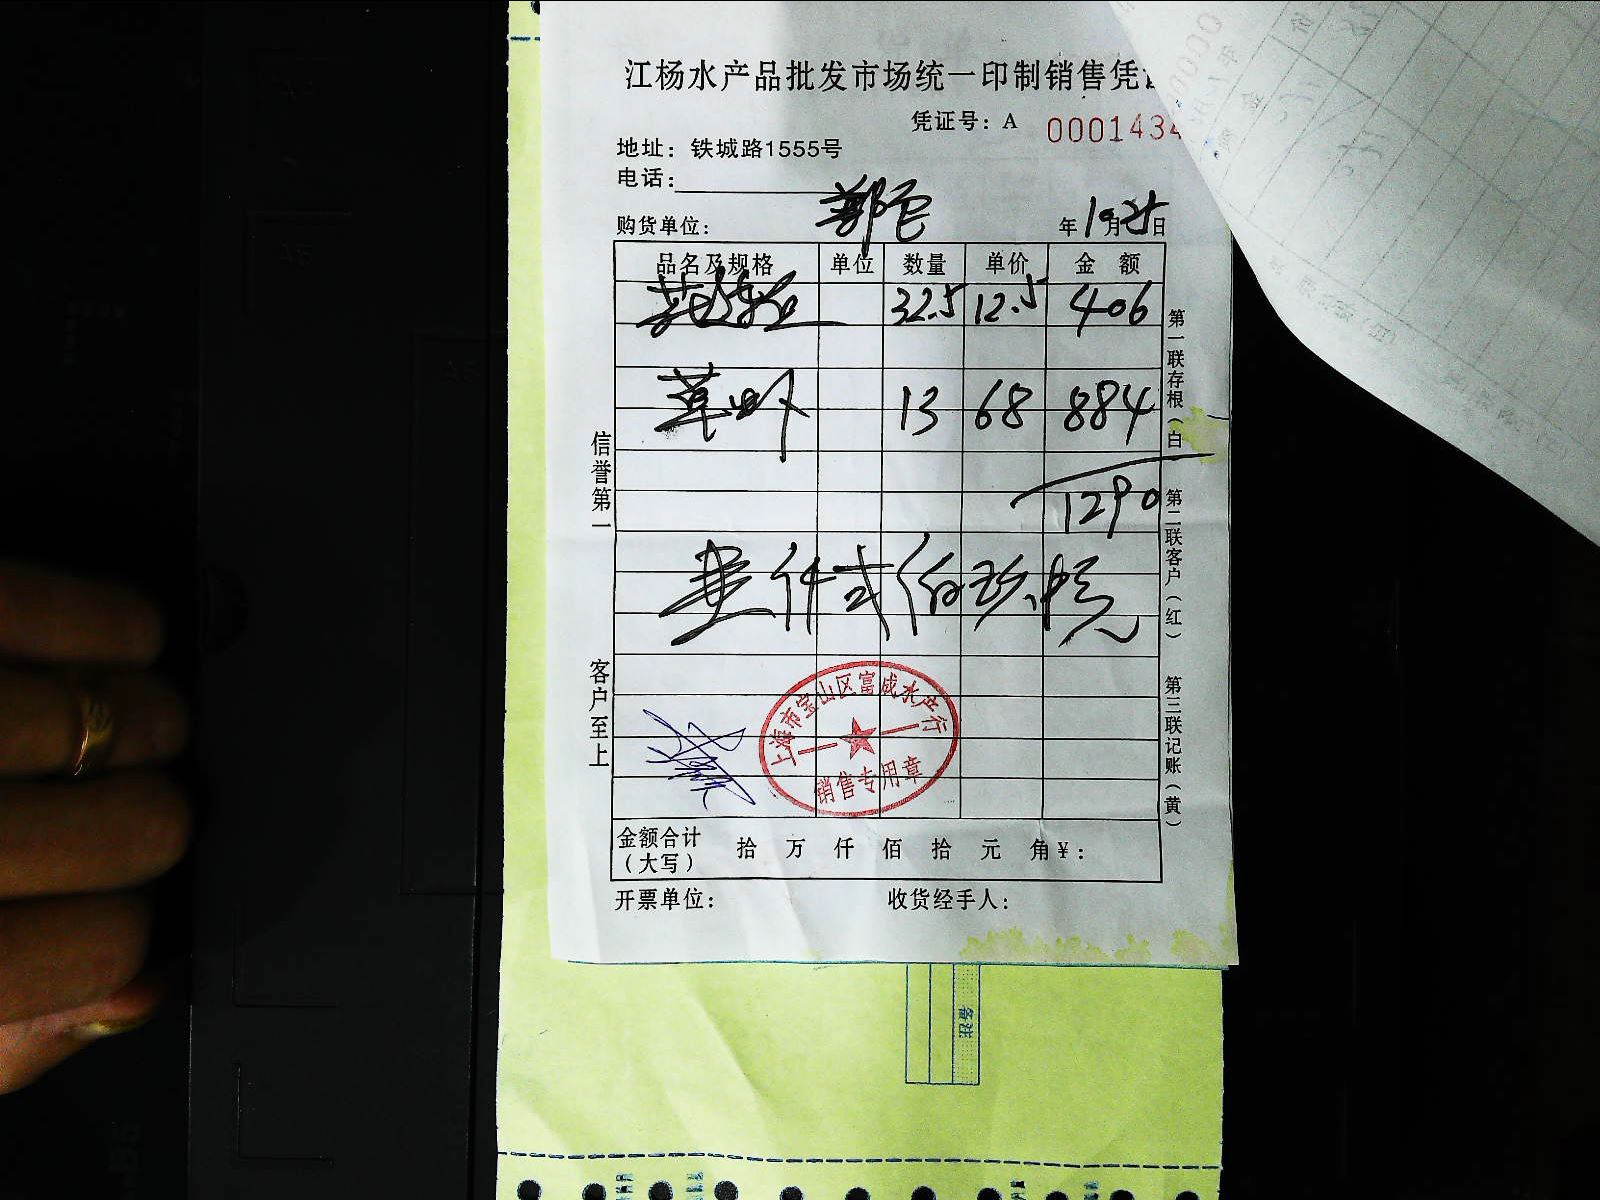 江杨水产品批发市场统一印制销售凭
凭证号：A 0001434
地址：铁城路1555号
电话：
购货单位： 年 月25日
品名及规格 单位 数量 单价 金 额
32.5 12.5 406
草虾 13 68 884
1290
壹仟弍佰玖拾元
信誉第一
客户至上
第一联存根（白
第二联客户（红）
第三联记账（黄）
上海市宝山区富成水产行
销售专用章
金额合计
（大写） 拾 万 仟 佰 拾 元 角¥：
开票单位： 收货经手人：
备注